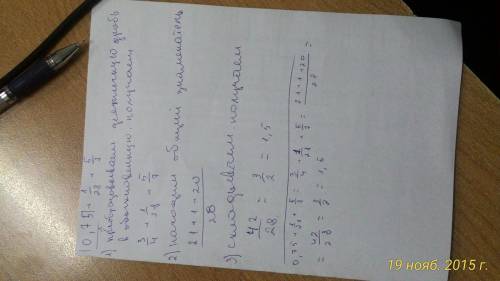 0,75 + 1/28 + 5/7
1) преобразовываем десятичную дробь
в обыкновенную. получаем
3/4 + 1/28 + 5/7
2) находим общий знаменатель
21+1+20/28
3) складываем, получаем
42/28 = 3/2 = 1,5
0,75 + 1/28 + 5/7 = 3/4 + 1/28 + 5/7 = 21+1+20/28 =
= 42/28 = 3/2 = 1,5
19 нояб. 2015 г.